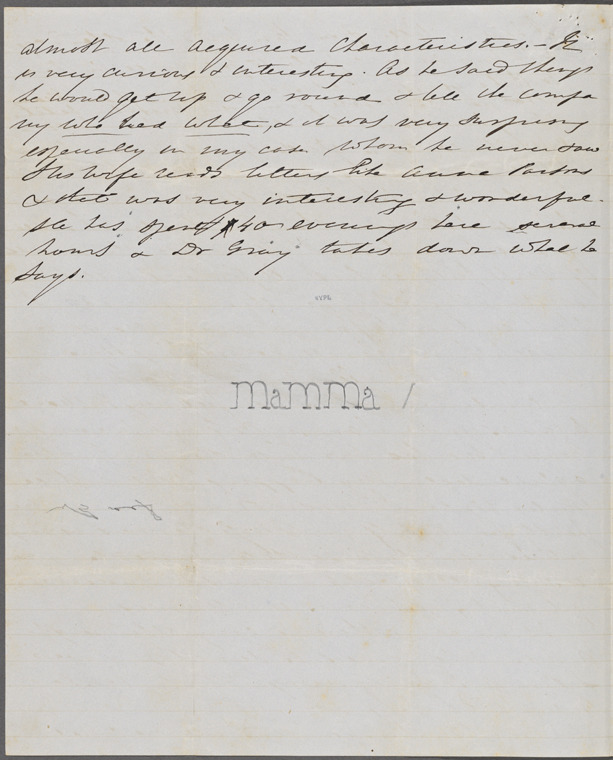 almost all acquired characteristics. - It
is very curious & interesting. As he said things
he would get up & go round & tell the compa
ny who had what, & it was very surprising
especially in my case whom he never saw
His wife reads letters like Anna Parsons
& that was very interesting & wonderful.
He has spent 40 evenings here several
hours & Dr Gray takes down what he
says.
Mamma /